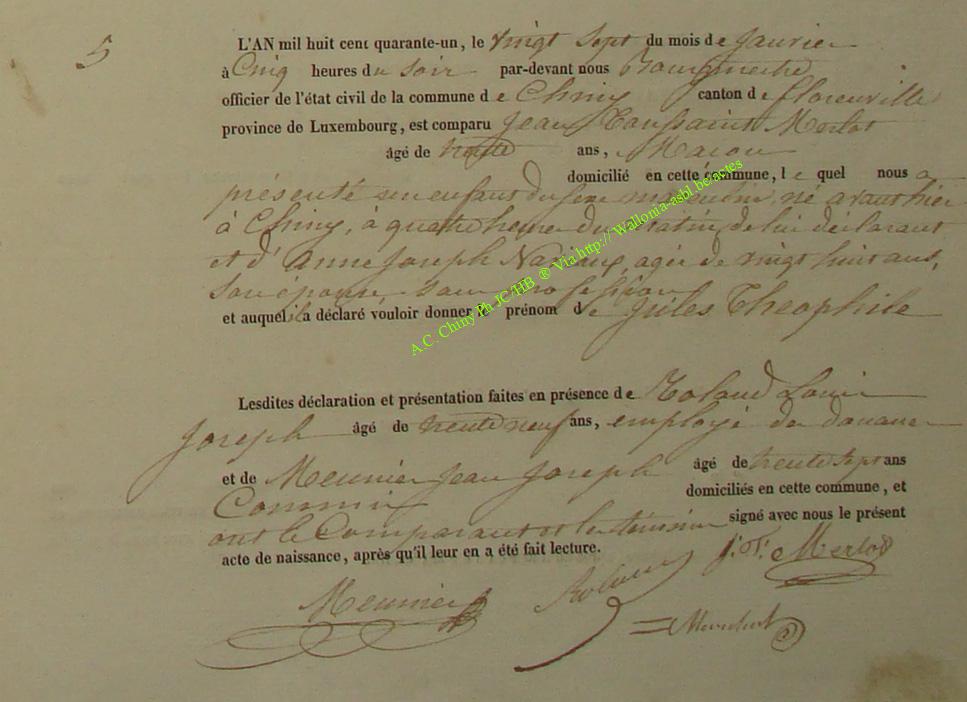 5
L'AN mil huit cent quarante-un, le vingt sept du mois de janvier
à Cinq heures du soir par-devant nous Bourgmestre
officier de l'état civil de la commune de Chiny canton de florenville
province de Luxembourg, est comparu Jean Toussaint Merlot
âgé de trente ans, Macon
domicilié en cette commune, le quel nous a
présenté un enfant du sexe masculin, né avant hier
à Chiny, à quatre heures du matin, de lui déclarant
et d'Anne Joseph agée de vingt huit ans,
son épouse, sans profession
et auquel il a déclaré vouloir donner le prénom de Jules Théophile
Lesdites déclaration et présentation faites en présence de Roland Louis
Joseph âgé de trente neuf ans, employé des douanes
et de Meunier Jean Joseph âgé de trente sept ans
Commis domiciliés en cette commune, et
ont le Comparant et les témoins signé avec nous le présent
acte de naissance, après qu'il leur en a été fait lecture.
J. T. Merlot
Meunier Roland
A.C. Chiny Ph JC/HB ® Via http:// Wallonia-asbl.be/actes